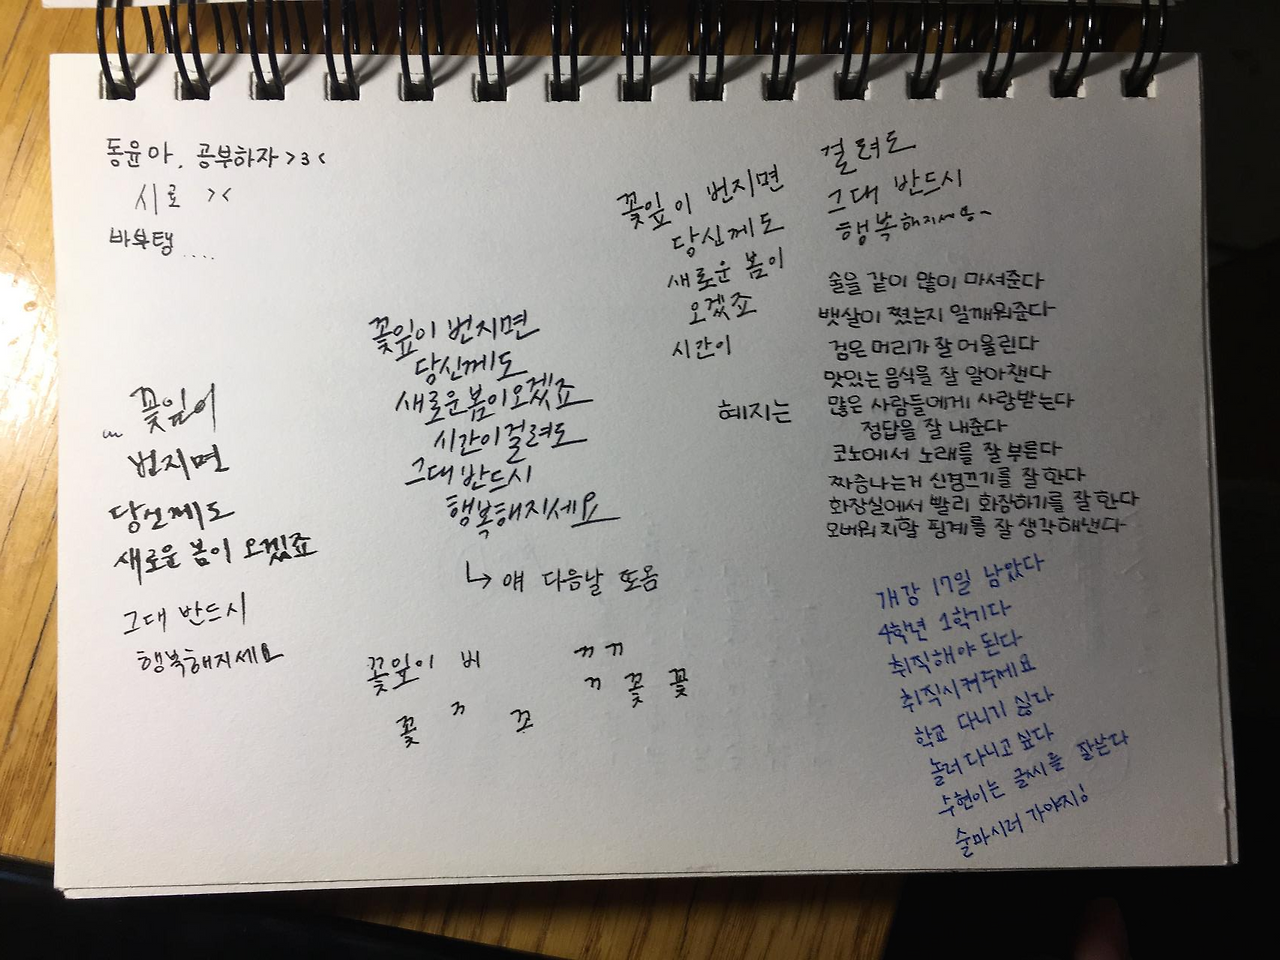 동윤아, 공부하자 >3<
시로 ><
바부탱....
꽃잎이
번지면
당신께도
새로운 봄이 오겠죠
그대 반드시
행복해지세요
꽃잎이 번지면
당신께도
새로운 봄이 오겠죠
시간이 걸려도
그대 반드시
행복해지세요
↳ 얘 다음날 또옴
꽃잎이 버
ㄲ ㄲ
ㄲ 꽃 꽃
꽃 ㄲ 꼬
꽃잎이 번지면
당신께도
새로운 봄이
오겠죠
시간이
걸려도
그대 반드시
행복해지세용~
혜지는
술을 같이 많이 마셔준다
뱃살이 쪘는지 일깨워준다
검은 머리가 잘 어울린다
맛있는 음식을 잘 알아챈다
많은 사람들에게 사랑받는다
정답을 잘 내준다
코노에서 노래를 잘 부른다
짜증나는거 신경끄기를 잘 한다
화장실에서 빨리 화장하기를 잘 한다
오버워치할 핑계를 잘 생각해낸다
개강 17일 남았다
4학년 1학기다
취직해야 된다
취직시켜주세요
학교 다니기 싫다
놀러 다니고 싶다
수현이는 글씨를 잘쓴다
술마시러 가야지!